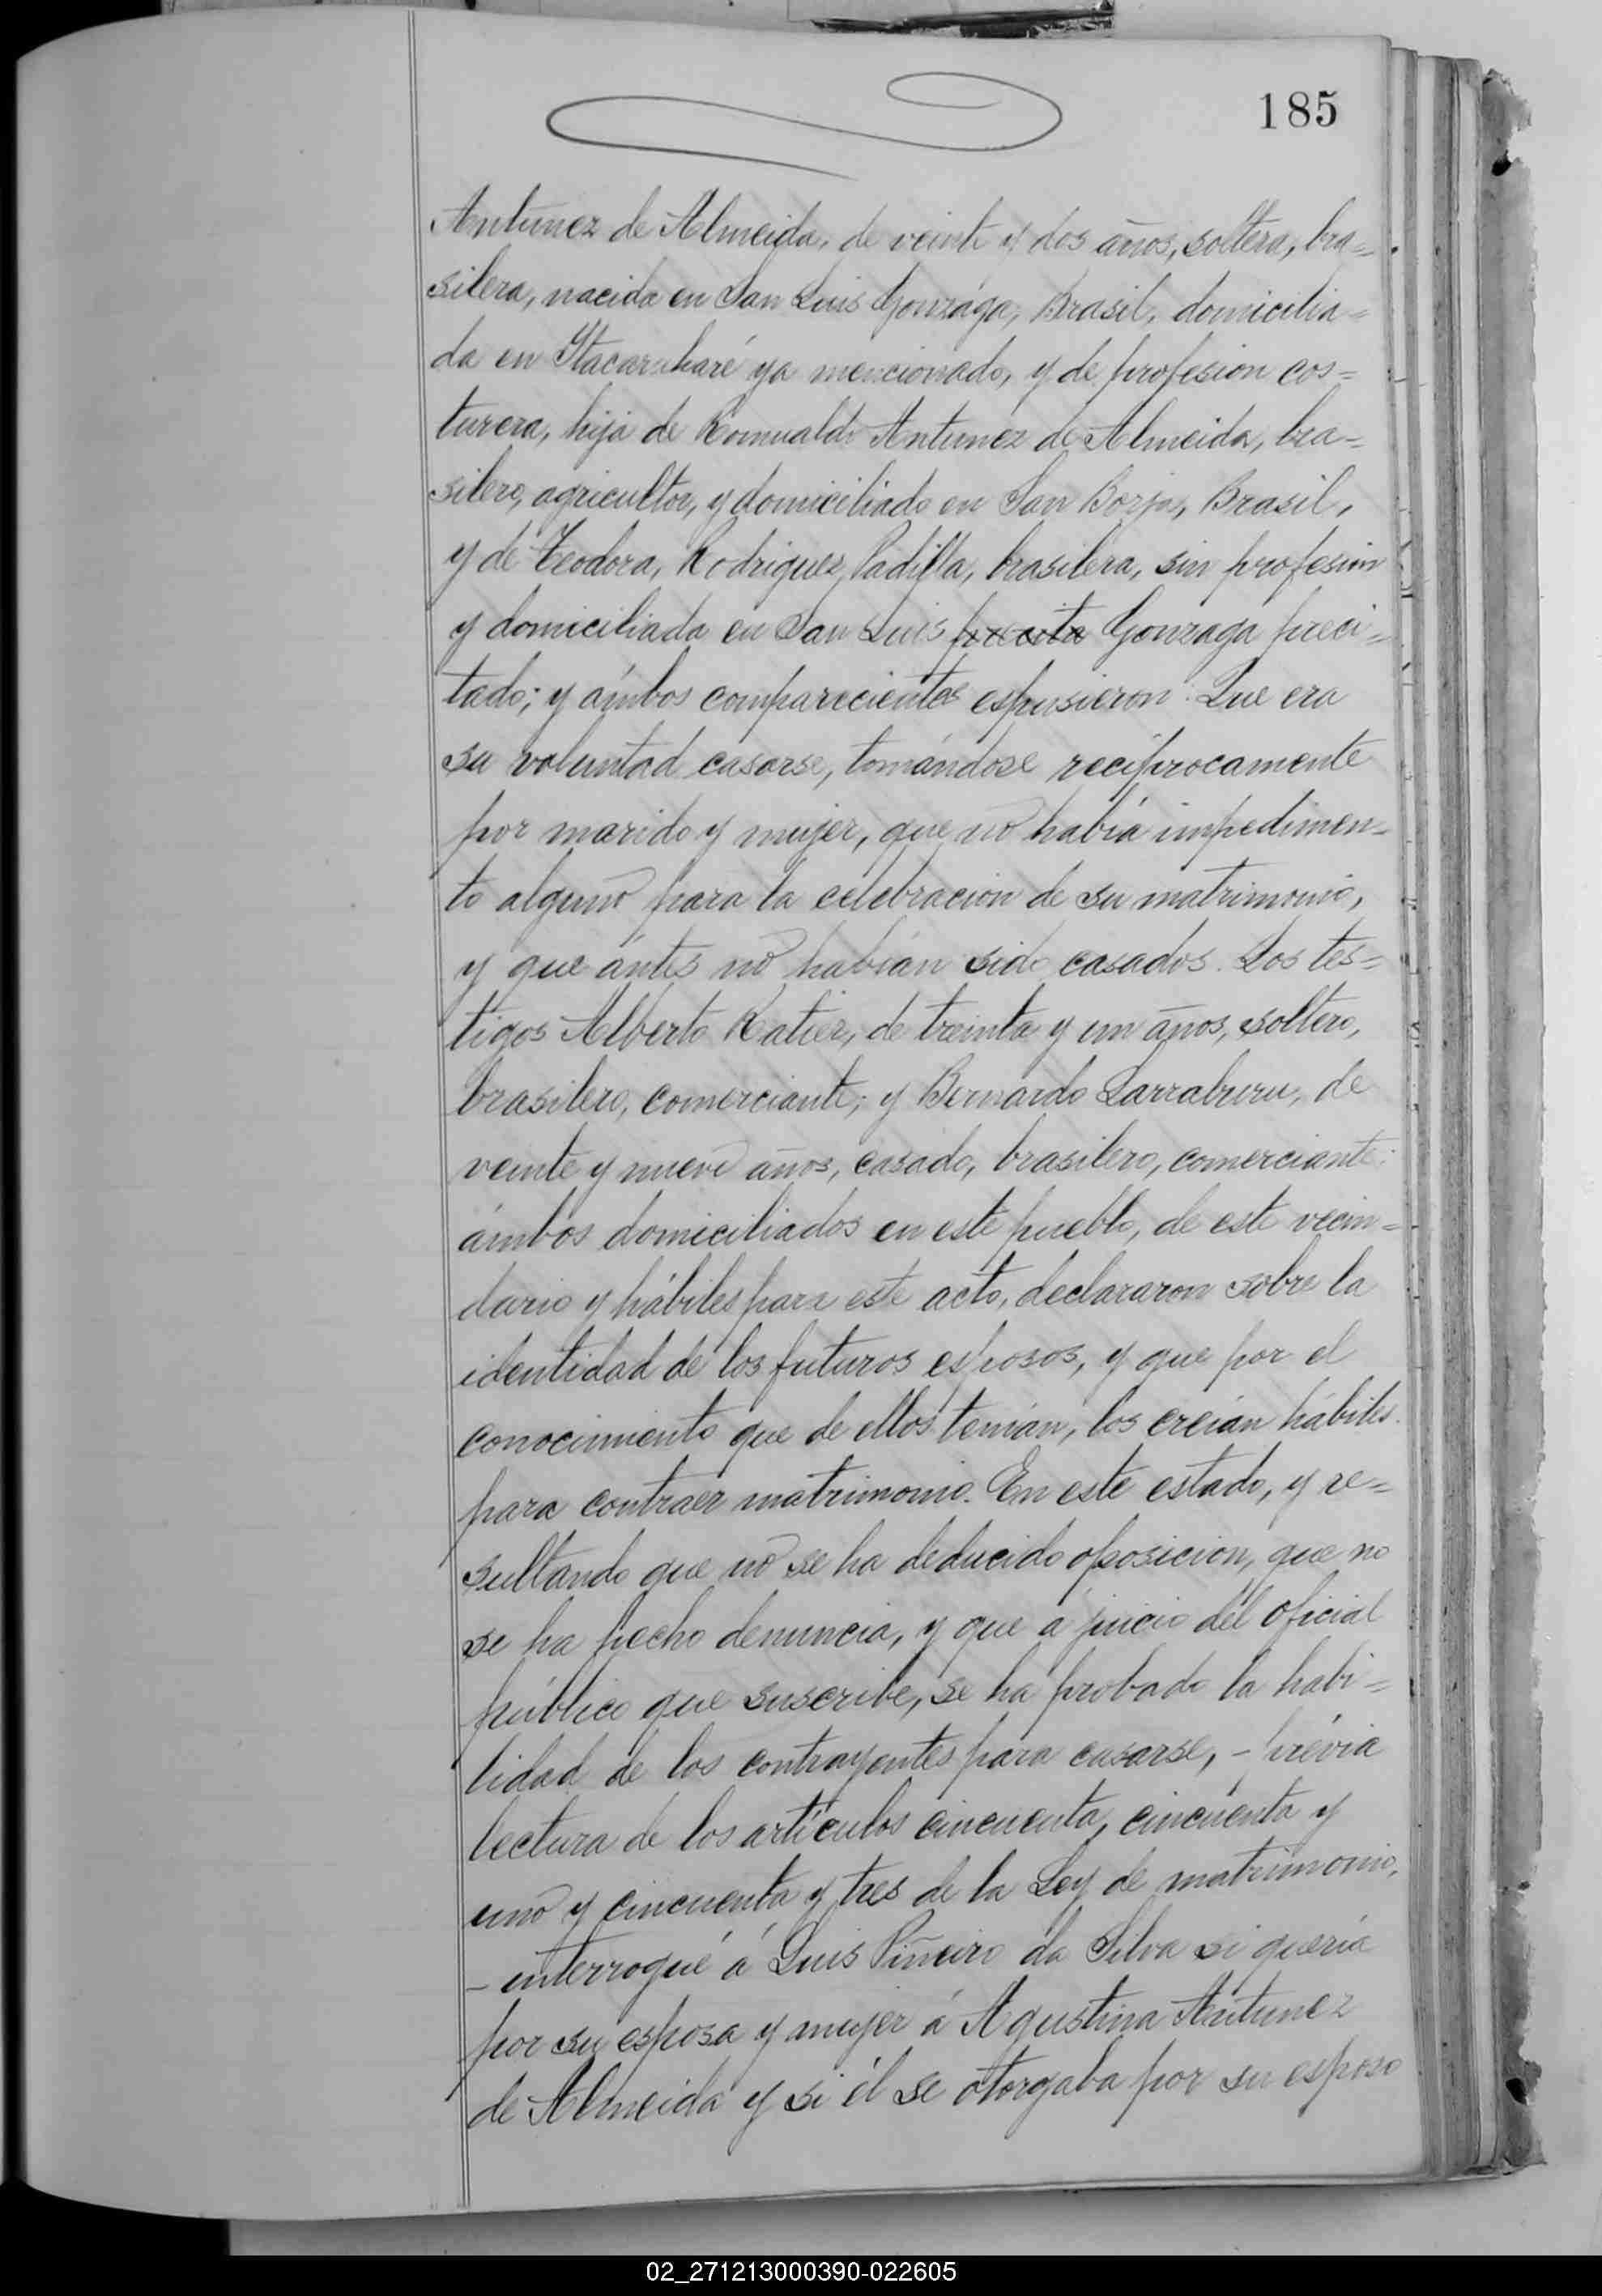 185
Antunez de Almeida, de veinte y dos años, soltera, bra=
silera, nacida en San Luis Gonzaga, Brasil, domicilia=
da en Itacaruharé ya mencionado, y de profesion cos=
turera, hija de Romualdo Antunez de Almeida, bra=
silero, agricultor, y domiciliado en San Borja, Brasil,
y de Teodora, Rodriguez Padilla, brasilera, sin profesion
y domiciliada en San Luis Gonzaga preci=
tado; y ámbos comparecientes espusieron: Que era
su voluntad casarse, tomándose recíprocamente
por marido y mujer, que no había impedimen=
to alguno para la celebracion de su matrimonio,
y que ántes no habían sido casados. Los tes=
tigos Alberto Ratier, de treinta y un años, soltero,
brasilero, comerciante; y Bernardo Larraburu, de
veinte y nueve años, casado, brasilero, comerciante:
ámbos domiciliados en este pueblo, de este vecin=
dario y hábiles para este acto, declararon sobre la
identidad de los futuros esposos, y que por el
conocimiento que de ellos tenían, los creían hábiles
para contraer matrimonio. En este estado, y re=
sultando que no se ha deducido oposicion, que no
se ha hecho denuncia, y que á juicio del oficial
público que suscribe, se ha probado la habi=
lidad de los contrayentes para casarse, - prévia
lectura de los artículos cincuenta, cincuenta y
uno y cincuenta y tres de la Ley de matrimonio,
- interrogué á Luis Piñeiro da Silva si quería
por su esposa y mujer á Agustina Antunez
de Almeida y si él se otorgaba por su esposo
02_271213000390-022605